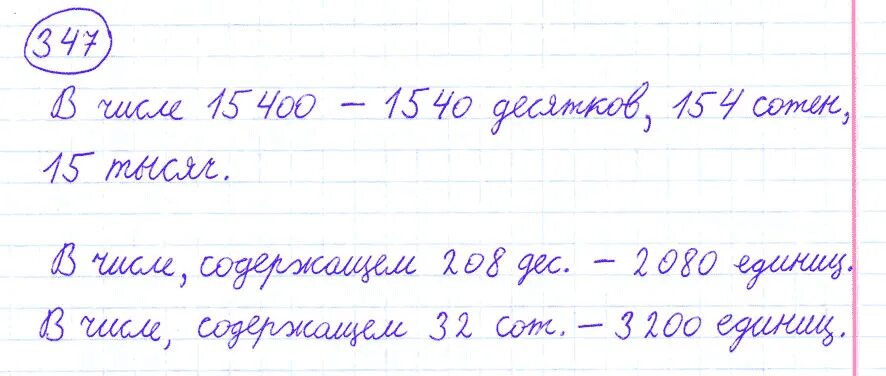 347
В числе 15400 – 1540 десятков, 154 сотен,
15 тысяч.
В числе, содержащем 208 дес. – 2080 единиц.
В числе, содержащем 32 сот. – 3200 единиц.